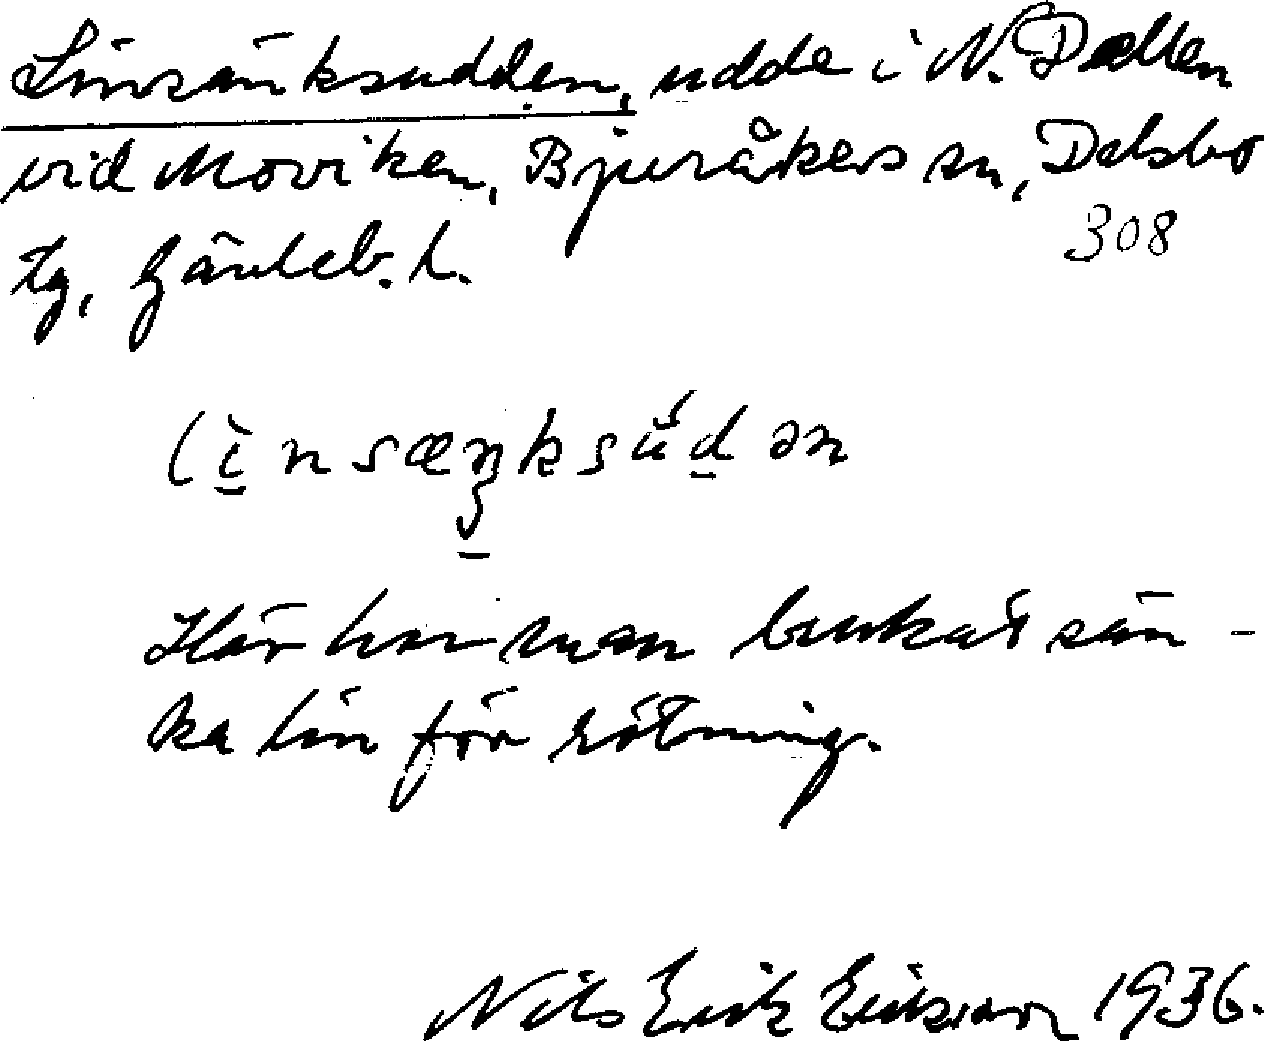 Linsänksudden, udde i N. Dellen
vid Moviken, Bjuråkers sn, Delsbo
308
tg, Gävleb. l.
lìnsæŋksúdən
Här har man brukat sän-
ka lin för rötning.
Nils Erik Eriksson 1936.